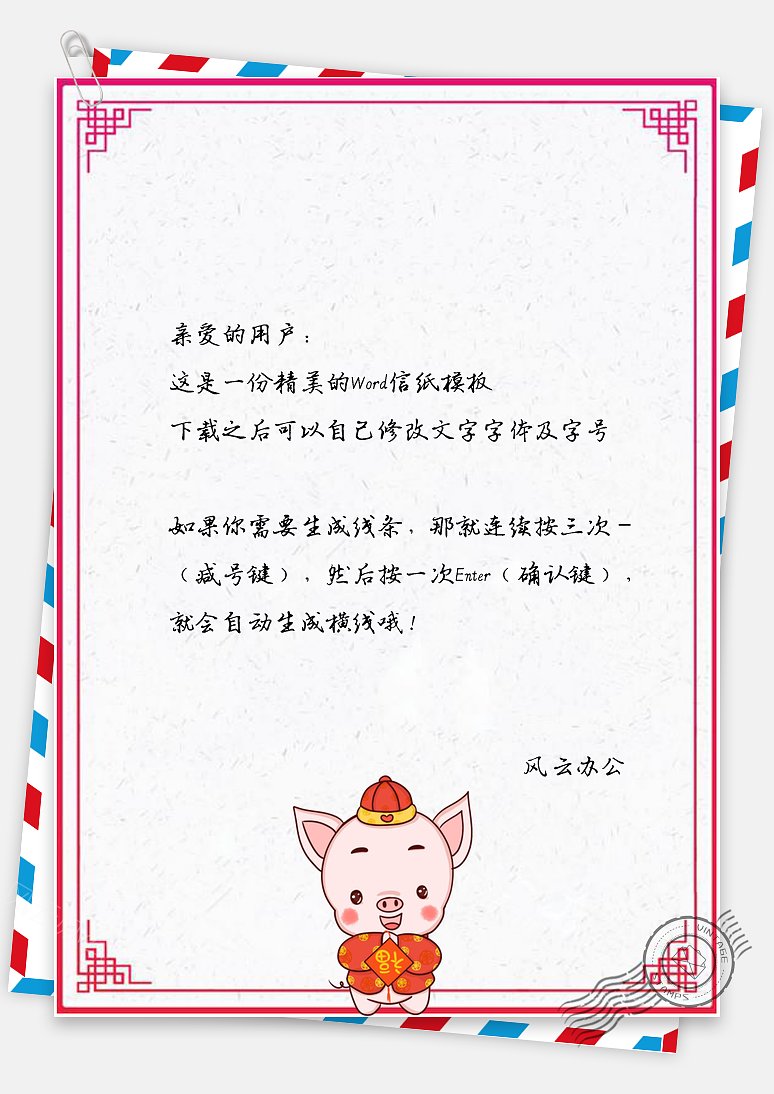 亲爱的用户：
这是一份精美的Word信纸模板
下载之后可以自己修改文字字体及字号
如果你需要生成线条，那就连续按三次－
（减号键），然后按一次Enter（确认键），
就会自动生成横线哦！
风云办公
福
VINTAGE
STAMPS